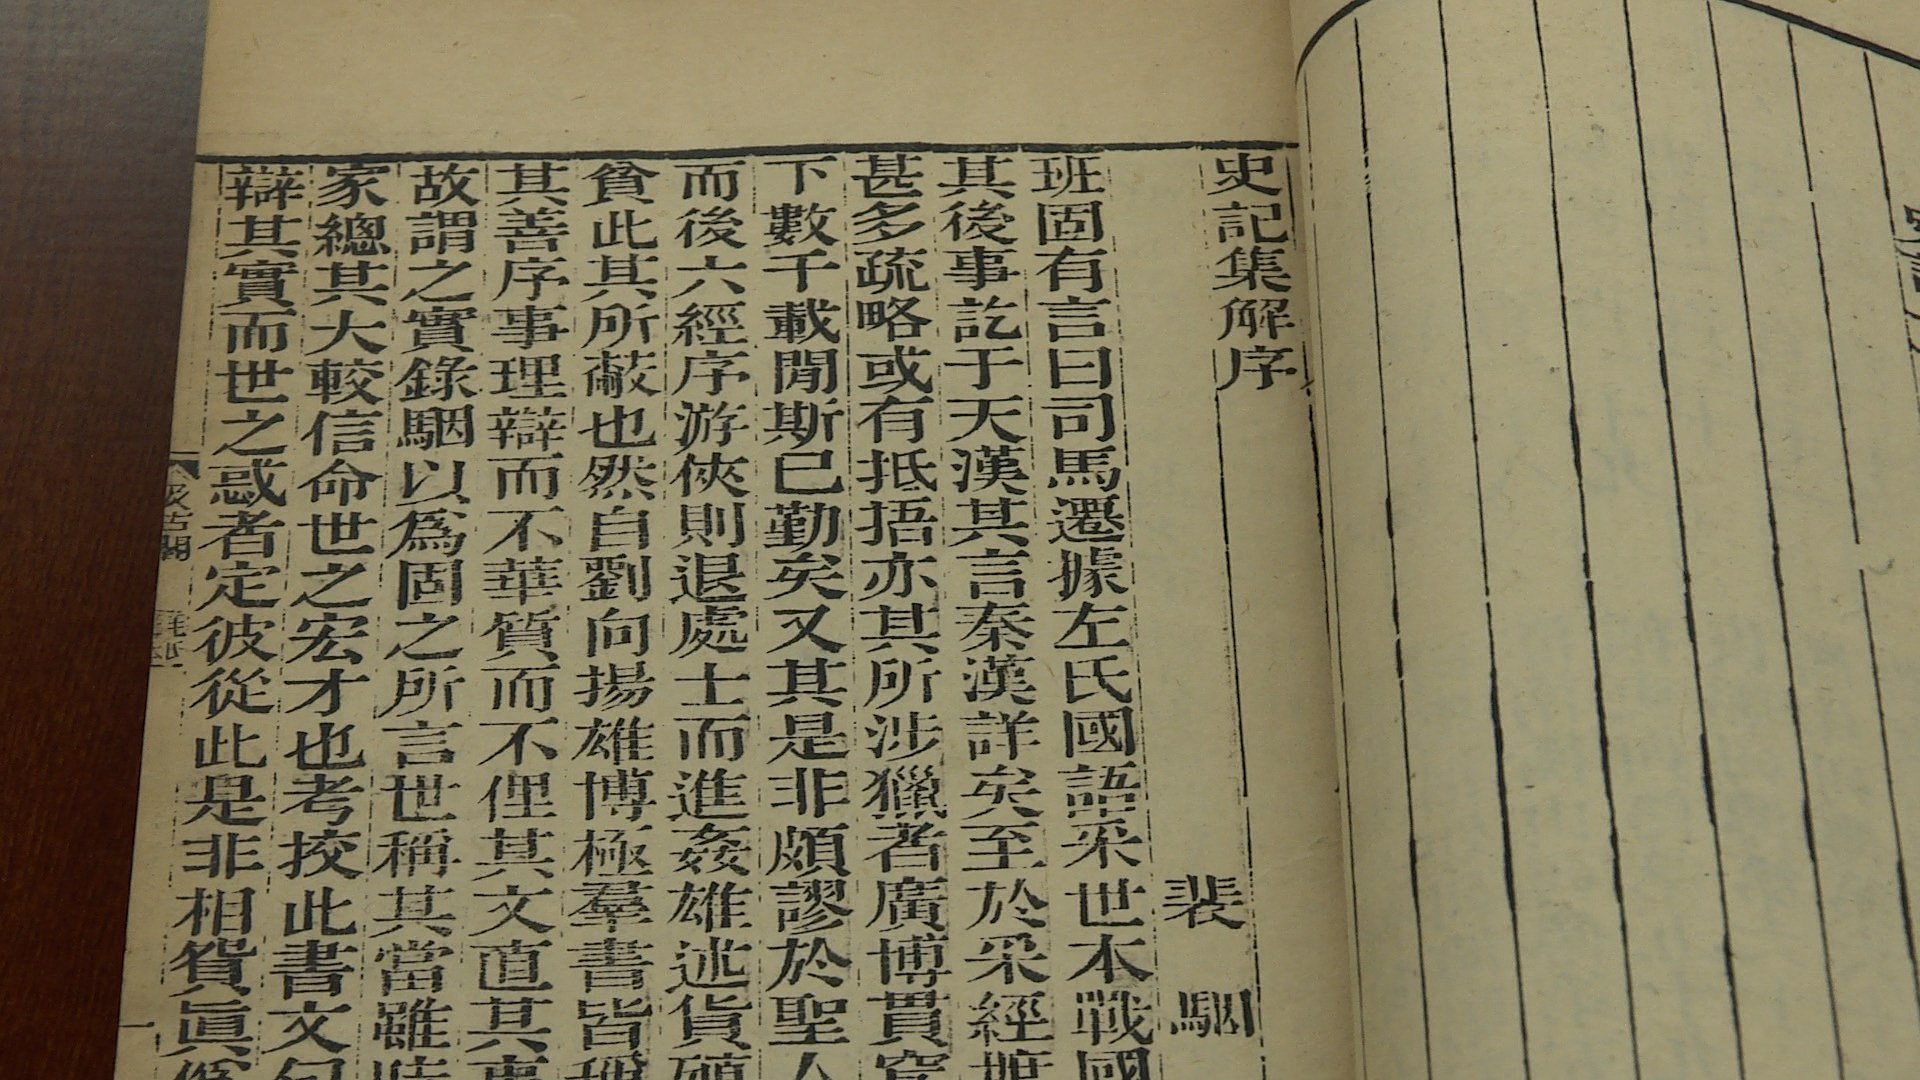 史記集解序
裴駰
班固有言曰司馬遷據左氏國語采世本戰國
其後事訖于天漢其言秦漢詳矣至於采經摭
甚多疏略或有抵捂亦其所涉獵者廣博貫穿
下數千載閒斯已勤矣又其是非頗謬於聖人
而後六經序游俠則退處士而進姦雄述貨殖
貧此其所蔽也然自劉向揚雄博極羣書皆稱
其善序事理辯而不華質而不俚其文直其事
故謂之實錄駰以爲固之所言世稱其當雖時
家總其大較信命世之宏才也考挍此書文句
辯其實而世之惑者定彼從此是非相貿眞僞
汲古閣
毛氏